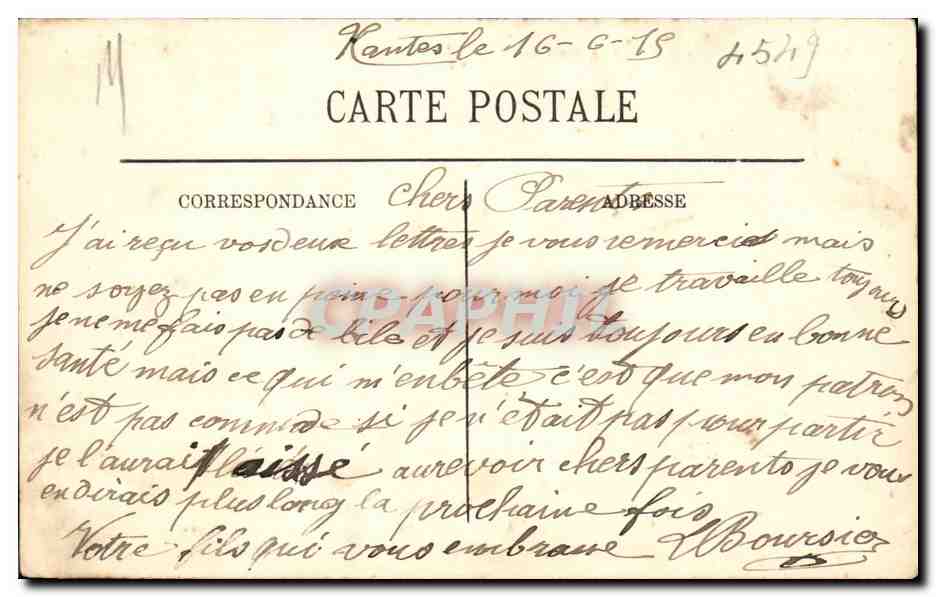 Nantes le 16-6-15
4549
M
CARTE POSTALE
CORRESPONDANCE
ADRESSE
chers Parents
J'ai reçu vos deux lettres je vous remercie mais
ne soyez pas en peine pour moi je travaille toujours
je ne me fais pas de bile et je suis toujours en bonne
santé mais ce qui m'enbête c'est que mon patron
n'est pas commode si je n'était pas pour partir
je l'aurait laissé aurevoir chers parents je vous
en dirais plus long la prochaine fois
Votre fils qui vous embrasse L Boursier
CPAPHIL